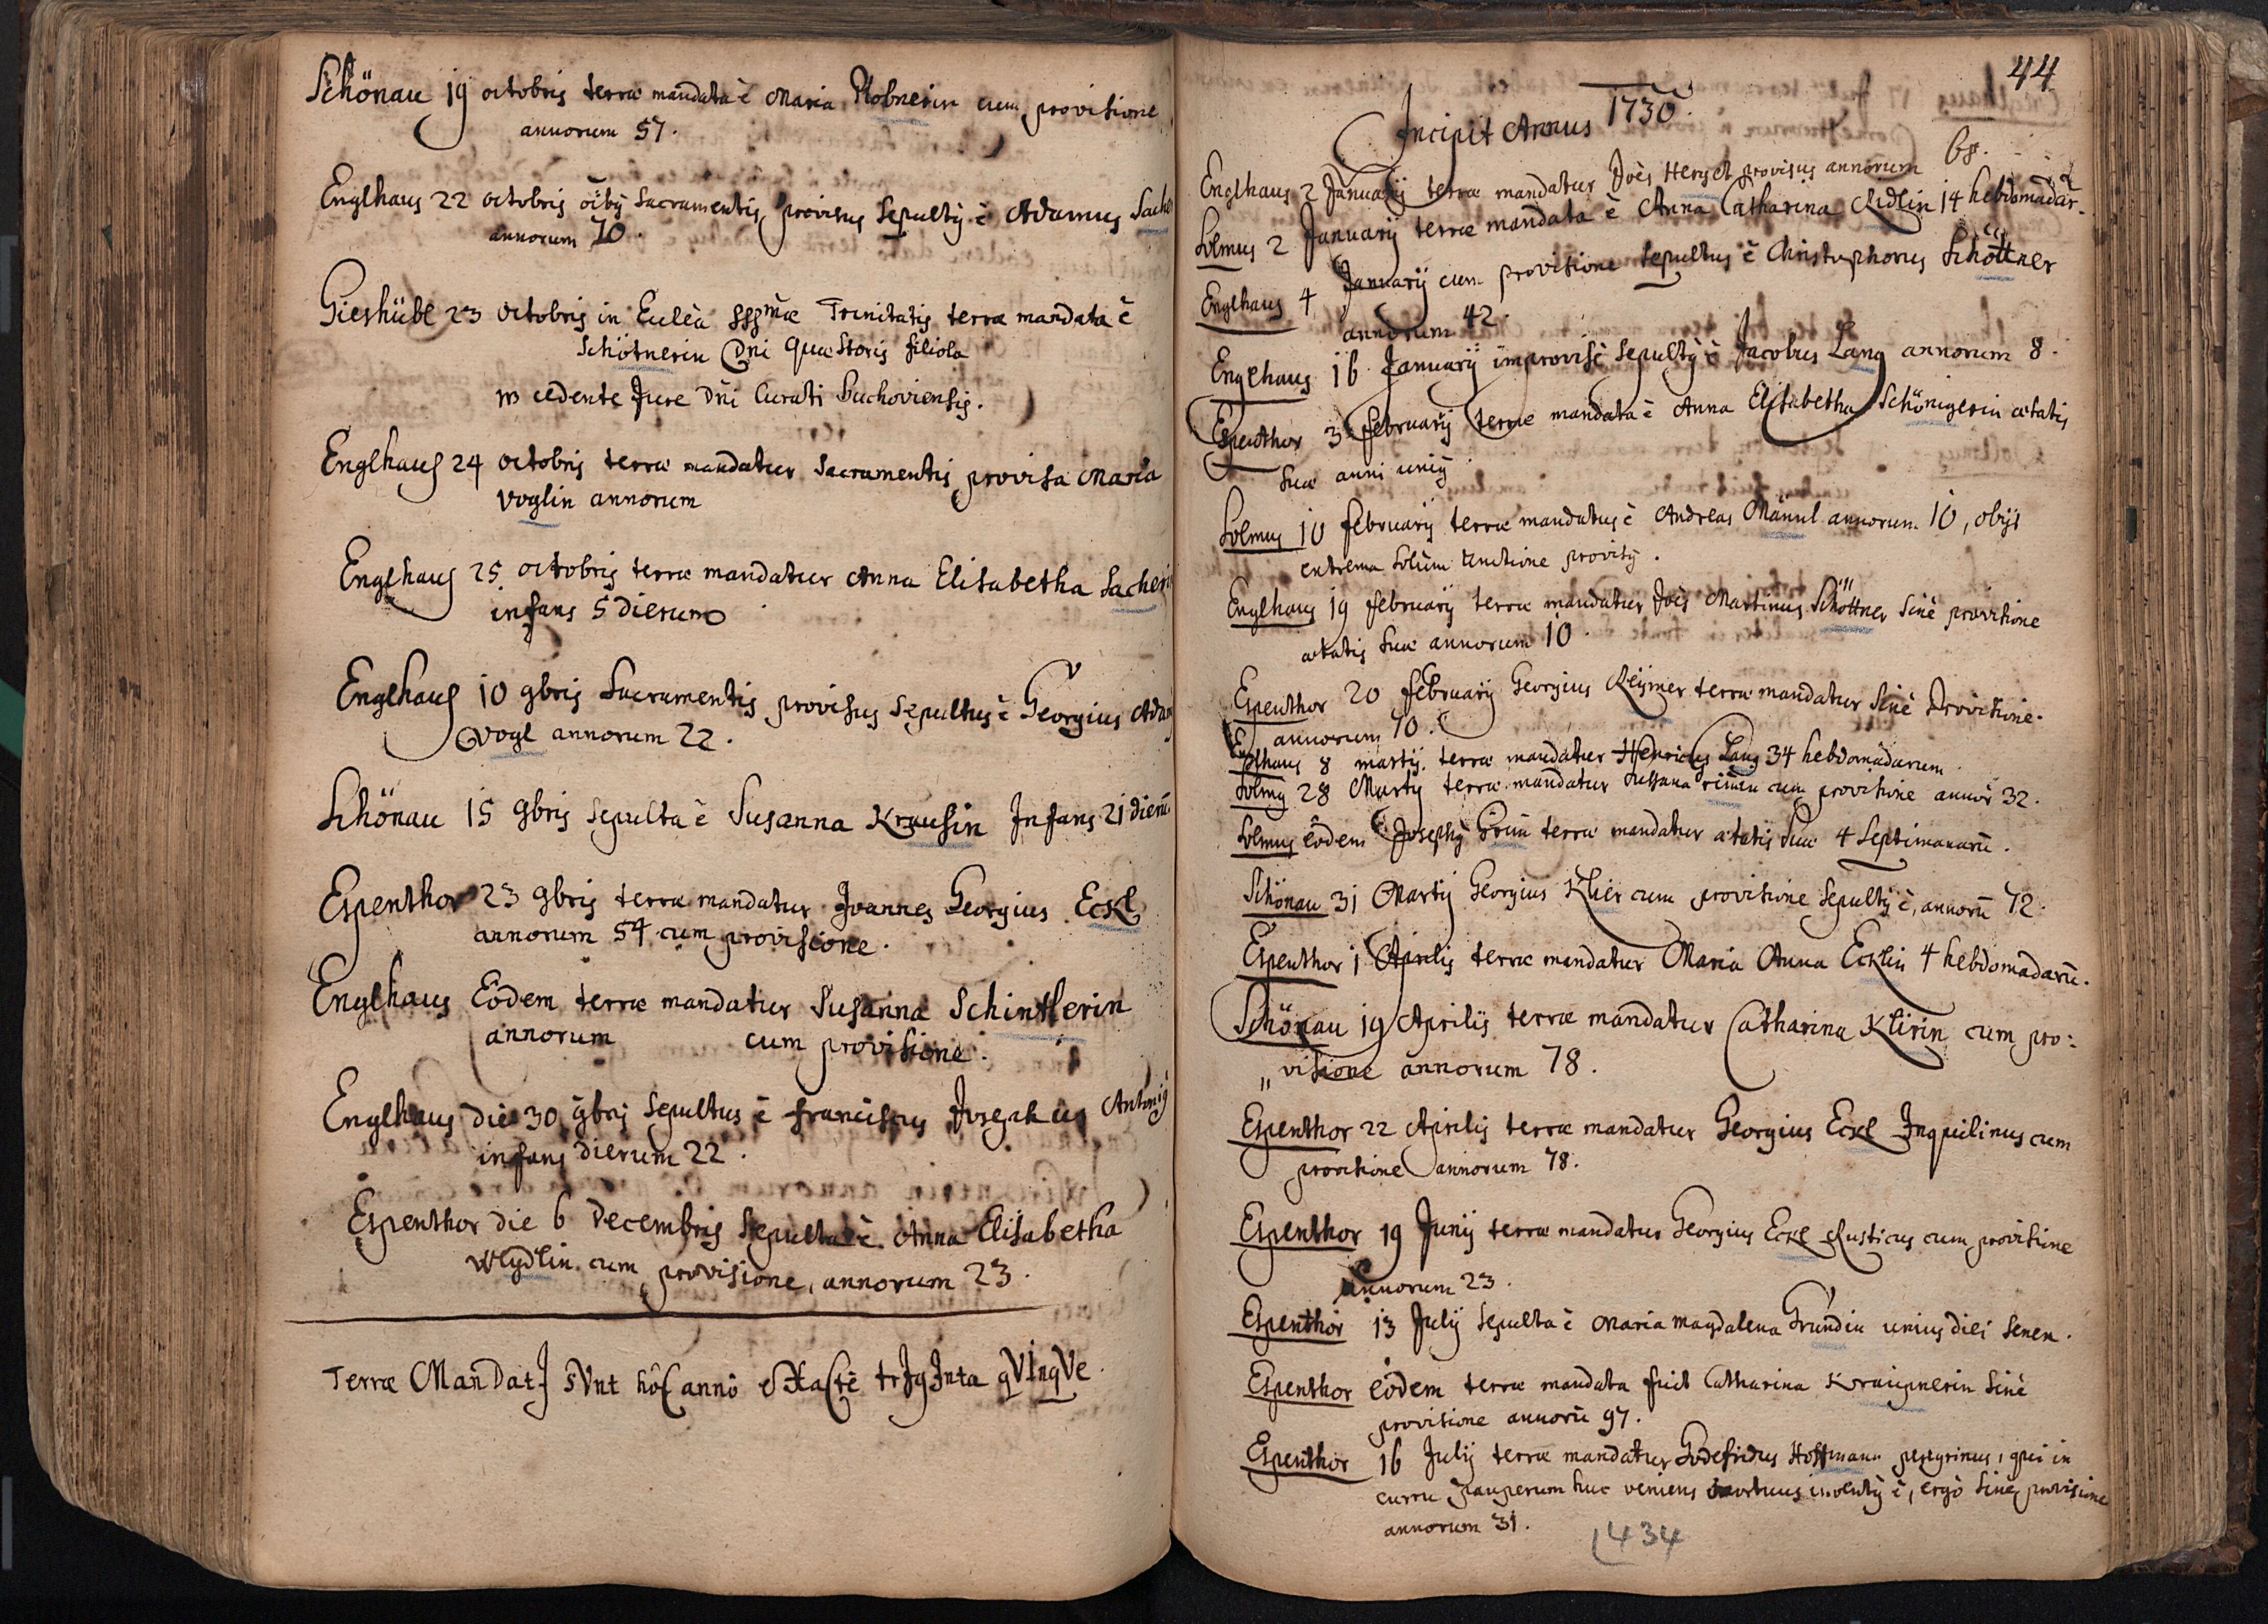 Schönau 19 octobris terræ mandata ē Maria cum provisione
annorum 57.
Englhaus 22 octobris oībȝ Sacramentis provisus Sepultȝ ē Adamus Sache
annorum 70.
Gieshübl 23 octobris in Eulēa SSSmæ Trinitatis terræ mandata ē
Schötnerin Dni Quæstoris filiola
cedente Jure Dñi Curati Buchoviensis.
Englhaus 24 octobris terræ mandatur Sacramentis provisa Maria
Voglin annorum
Englhaus 25 octobris terræ mandatur Anna Elisabetha Sacheri
infans 5 dierum
Englhaus 10 9bris Sacramentis provisus Sepultus ē Georgius Adam
Vogl annorum 22.
Schönau 15 9bris Sepulta ē Susanna Krausin Infans 21 dierū
Espenthor 23 9bris terræ mandatur Joannes Georgius Eckl
annorum 54 cum provisione.
Englhaus Eôdem terræ mandatur Susanna Schintlerin
annorum cum provisione.
Englhaus die 30 9bris Sepultus ē Franciscus Josephus Antoniȝ
infans dierum 22.
Espenthor die 6 Decembris Sepulta ē Anna Elisabetha
Weydlin cum provisione, annorum 23.
Terræ ManDatJ sVnt hôC annô eXaCtè trJgJnta qVInqVe.
44
Incipit Annus 1730.
Englhaus 2 Januarij terræ mandatur Joēs Hersch provisus annorum 68.
Solmus 2 Januarij terræ mandata ē Anna Catharina Ridlin 14 hebdomadar.
Englhaus 4 Januarij cum provisione sepultus ē Christophorus Schöttner
annorum 42.
Englhaus 16 Januarij improvisè Sepultȝ ē Jacobus Lang annorum 8.
Espenthor 3 February terræ mandata ē Anna Elisabetha Schönigerin ætatis
suæ anni uniȝ.
Solmus 10 February terræ mandatus ē Andreas Mannl annorum 10, obijt
extrema solùm Unctione provisȝ.
Englhaus 19 February terræ mandatur Joēs Martinus Schöttner Sinè provisione
ætatis suæ annorum 10.
Espenthor 20 February Georgius Reymer terræ mandatur Sinè Provisione.
annorum 70.
Englhaus 8 martij terræ mandatur Henricus Lang 34 hebdomadarum
Solmȝ 28 Martij terræ mandatur Sussana cum provisione annor 32.
Solmus eôdem Josephȝ Grün terræ mandatur ætatis suæ 4 Septimanarū.
Schönau 31 Martij Georgius Klier cum provisione Sepultȝ ē, annorū 72.
Espenthor 1 Aprilis terræ mandatur Maria Anna Ecklin 4 hebdomadarū.
Schönau 19 Aprilis terræ mandatur Catharina Klirin cum pro:
„visione annorum 78.
Espenthor 22 Aprilis terræ mandatur Georgius Eckl Inquilinus cum
provisione annorum 78.
Espenthor 19 Junij terræ mandatur Georgius Eckl Rusticus cum provisione
annorum 23.
Espenthor 13 July Sepulta ē Maria Magdalena Gründin unius diei Senex.
Espenthor eôdem terræ mandata fuit Catharina Kraupnerin Sinè
provisione annorū 97.
Espenthor 16 July terræ mandatur Godefridus Hoffmann peregrinus, qui in
curru pauperum huc veniens mortuus inventȝ ē, ergò Sinè provisione
annorum 31.
434